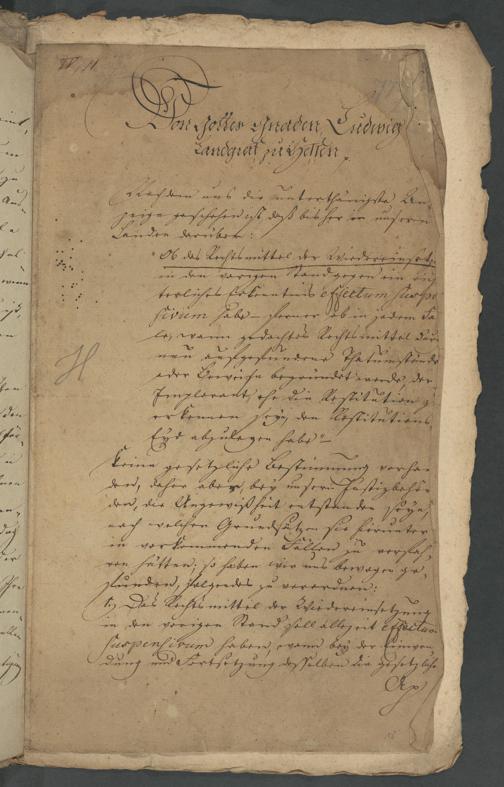 Von Gottes Gnaden, Ludwig
Landgraf zu Hessen
Nachdem uns die unterthänigste An-
zeige geschehen ist daß bisher in unseren
Landen darüber:
Ob das Rechtsmittel der Wiedereinsetz.
in den vorigen Stand gegen ein rich-
terliches Erkentnis effectum suspen
sivum habe – ferner ob in jedem Fal-
le, wann gedachtes Rechtsmittel durch
neu aufgefundene Thatumstände
oder Beweise begründet werde, der
Implorant, ehe die Restitution zu
erkennen seye, den Restitutions
Eyd abzulegen habe?
Keine gesetzliche Bestimmung vorhan-
den, daher aber, bey unsern Justizbehör-
den, die Ungewißheit entstanden seye,
nach welchen Grundsätzen sie hierunter
in vorkommenden Fällen zu verfah-
ren hätten, so haben wir uns bewogen ge-
funden, folgendes zu verordnen:
1.) Das Rechtsmittel der Wiedereinsetzung
in den vorigen Stand soll allezeit effectum
suspensivum haben, wenn bey der Einwen-
dung und Fortsetzung desselben die gesetzliche